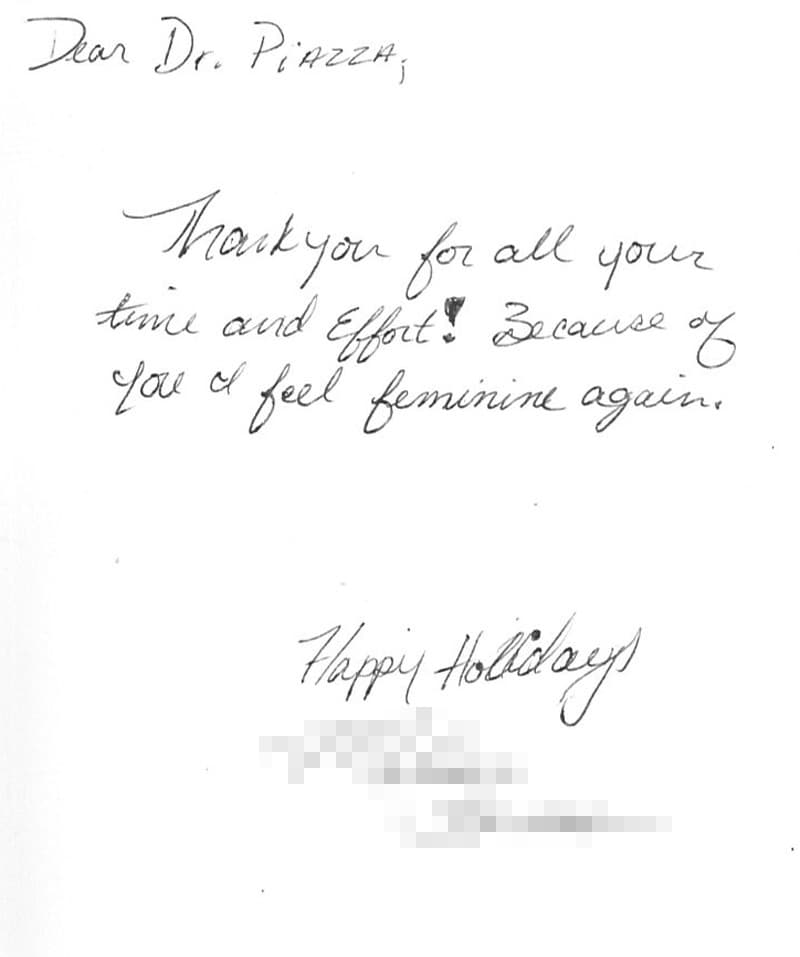 Dear Dr. PiAZZA,
Thank you for all your
time and Effort! Because of
you I feel feminine again.
Happy Holidays